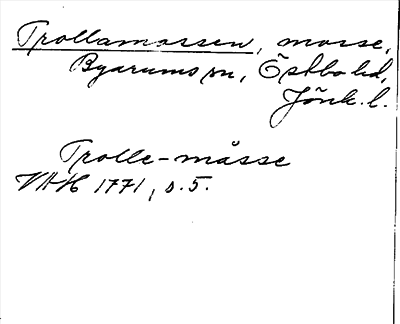 Trollamossen, mosse,
Byarums sn, Östbo hd,
Jönk. l.
Trolle-måsse
VAH 1771, s. 5.